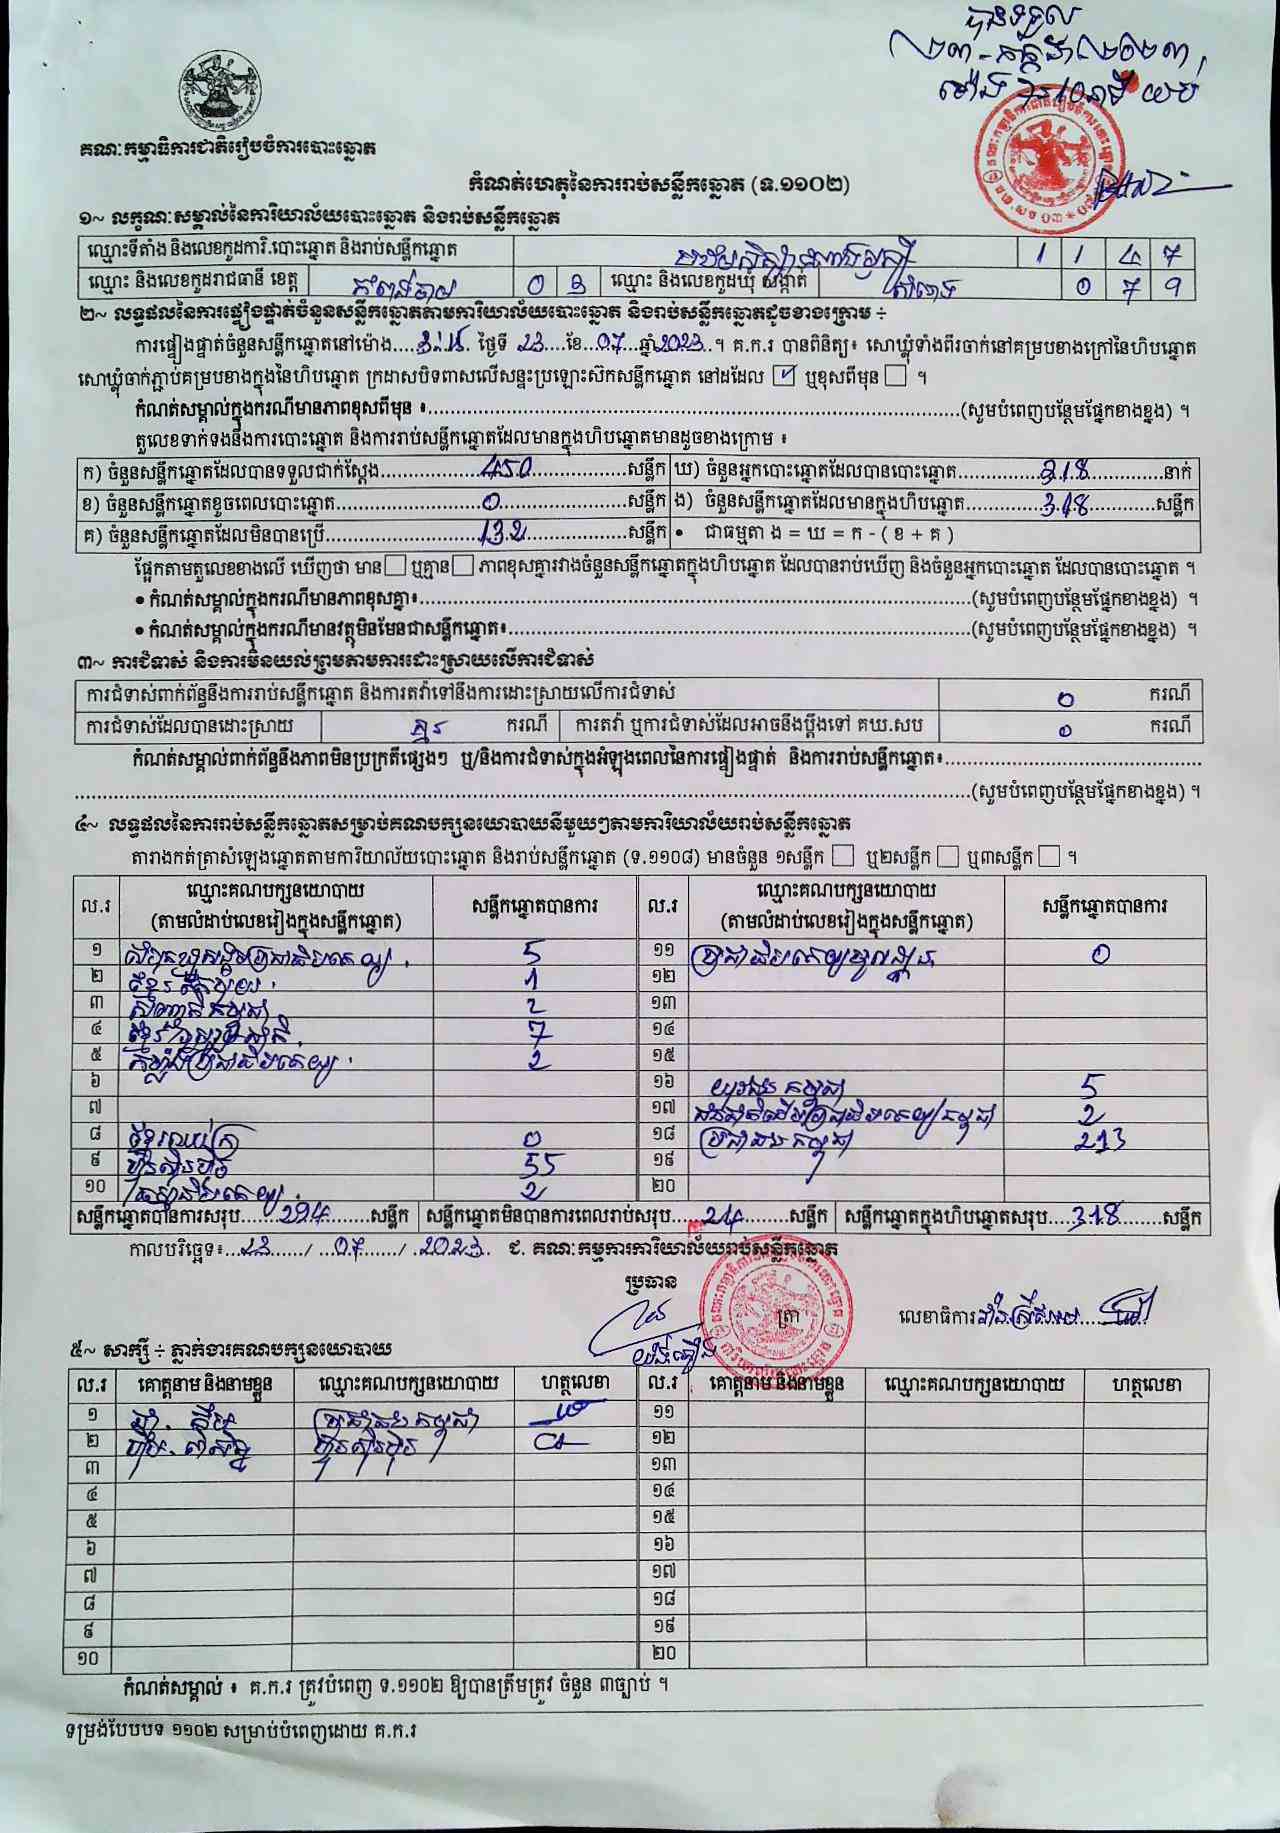 បានទទួល
គណៈកម្មាធិការជាតិរៀបចំការបោះឆ្នោត
កំណត់ហេតុនៃការរាប់សន្លឹកឆ្នោត (ទ.១១០២)
១~ លក្ខណៈសម្គាល់នៃការិយាល័យបោះឆ្នោត និងរាប់សន្លឹកឆ្នោត
ឈ្មោះទីតាំង និងលេខកូដការិ.បោះឆ្នោត និងរាប់សន្លឹកឆ្នោត 1 1 4 7
ឈ្មោះ និងលេខកូដរាជធានី ខេត្ត កំពង់ចាម 0 3 ឈ្មោះ និងលេខកូដឃុំ សង្កាត់ 0 7 9
២~ លទ្ធផលនៃការផ្ទៀងផ្ទាត់ចំនួនសន្លឹកឆ្នោតតាមការិយាល័យបោះឆ្នោត និងរាប់សន្លឹកឆ្នោតដូចខាងក្រោម ÷
ការផ្ទៀងផ្ទាត់ចំនួនសន្លឹកឆ្នោតនៅម៉ោង....3:15 ថ្ងៃទី 23 ខែ 07 ឆ្នាំ 2023 ។ គ.ក.រ បានពិនិត្យ៖ សោឃ្លុំទាំងពីរចាក់នៅគម្របខាងក្រៅនៃហិបឆ្នោត
សោឃ្លុំចាក់ភ្ជាប់គម្របខាងក្នុងនៃហិបឆ្នោត ក្រដាសបិទពាសលើសន្ទះប្រឡោះស៊កសន្លឹកឆ្នោត នៅដដែល ☑ ឬខុសពីមុន ☐ ។
កំណត់សម្គាល់ក្នុងករណីមានភាពខុសពីមុន ៖..........(សូមបំពេញបន្ថែមផ្នែកខាងខ្នង) ។
តួលេខទាក់ទងនឹងការបោះឆ្នោត និងការរាប់សន្លឹកឆ្នោតដែលមានក្នុងហិបឆ្នោតមានដូចខាងក្រោម ៖
ក) ចំនួនសន្លឹកឆ្នោតដែលបានទទួលជាក់ស្តែង..........450..........សន្លឹក ឃ) ចំនួនអ្នកបោះឆ្នោតដែលបានបោះឆ្នោត..........318..........នាក់
ខ) ចំនួនសន្លឹកឆ្នោតខូចពេលបោះឆ្នោត..........0..........សន្លឹក ង) ចំនួនសន្លឹកឆ្នោតដែលមានក្នុងហិបឆ្នោត..........318..........សន្លឹក
គ) ចំនួនសន្លឹកឆ្នោតដែលមិនបានប្រើ..........132..........សន្លឹក • ជាធម្មតា ង = ឃ = ក - ( ខ + គ )
ផ្អែកតាមតួលេខខាងលើ ឃើញថា មាន ☐ ឬគ្មាន ☐ ភាពខុសគ្នារវាងចំនួនសន្លឹកឆ្នោតក្នុងហិបឆ្នោត ដែលបានរាប់ឃើញ និងចំនួនអ្នកបោះឆ្នោត ដែលបានបោះឆ្នោត ។
• កំណត់សម្គាល់ក្នុងករណីមានភាពខុសគ្នា៖..........(សូមបំពេញបន្ថែមផ្នែកខាងខ្នង) ។
• កំណត់សម្គាល់ក្នុងករណីមានវត្ថុមិនមែនជាសន្លឹកឆ្នោត៖..........(សូមបំពេញបន្ថែមផ្នែកខាងខ្នង) ។
៣~ ការជំទាស់ និងការមិនយល់ព្រមតាមការដោះស្រាយលើការជំទាស់
ការជំទាស់ពាក់ព័ន្ធនឹងការរាប់សន្លឹកឆ្នោត និងការតវ៉ាទៅនឹងការដោះស្រាយលើការជំទាស់ 0 ករណី
ការជំទាស់ដែលបានដោះស្រាយ គ្មាន ករណី ការតវ៉ា ឬការជំទាស់ដែលអាចនឹងប្តឹងទៅ គឃ.សប 0 ករណី
កំណត់សម្គាល់ពាក់ព័ន្ធនឹងភាពមិនប្រក្រតីផ្សេងៗ ឬ/និងការជំទាស់ក្នុងអំឡុងពេលនៃការផ្ទៀងផ្ទាត់ និងការរាប់សន្លឹកឆ្នោត៖..........
..........(សូមបំពេញបន្ថែមផ្នែកខាងខ្នង) ។
៤~ លទ្ធផលនៃការរាប់សន្លឹកឆ្នោតសម្រាប់គណបក្សនយោបាយនីមួយៗតាមការិយាល័យរាប់សន្លឹកឆ្នោត
តារាងកត់ត្រាសំឡេងឆ្នោតតាមការិយាល័យបោះឆ្នោត និងរាប់សន្លឹកឆ្នោត (ទ.១១០៨) មានចំនួន ១សន្លឹក ☐ ឬ២សន្លឹក ☐ ឬ៣សន្លឹក ☐ ។
ល.រ ឈ្មោះគណបក្សនយោបាយ (តាមលំដាប់លេខរៀងក្នុងសន្លឹកឆ្នោត) សន្លឹកឆ្នោតបានការ ល.រ ឈ្មោះគណបក្សនយោបាយ (តាមលំដាប់លេខរៀងក្នុងសន្លឹកឆ្នោត) សន្លឹកឆ្នោតបានការ
១ សំបុកឃ្មុំសង្គមប្រជាធិបតេយ្យ 5 ១១ ប្រជាធិបតេយ្យមូលដ្ឋាន 0
២ ខ្មែរតែមួយ 1 ១២
៣ សញ្ជាតិកម្ពុជា 2 ១៣
៤ 7 ១៤
៥ កម្លាំងប្រជាធិបតេយ្យ 2 ១៥
៦ ១៦ យុវជនកម្ពុជា 5
៧ ១៧ ជនជាតិដើមប្រជាធិបតេយ្យកម្ពុជា 2
៨ ខ្មែរឈប់ក្រ 0 ១៨ ប្រជាជនកម្ពុជា 213
៩ ហ្វ៊ុនស៊ិនប៉ិច 55 ១៩
១០ ធម្មាធិបតេយ្យ 2 ២០
សន្លឹកឆ្នោតបានការសរុប.......294.......សន្លឹក សន្លឹកឆ្នោតមិនបានការពេលរាប់សរុប.....24.......សន្លឹក សន្លឹកឆ្នោតក្នុងហិបឆ្នោតសរុប....318.......សន្លឹក
កាលបរិច្ឆេទ៖...23...../...07....../.2023. ជ. គណៈកម្មការការិយាល័យរាប់សន្លឹកឆ្នោត
ប្រធាន
ត្រា
លេខាធិការ
៥~ សាក្សី ÷ ភ្នាក់ងារគណបក្សនយោបាយ
ល.រ គោត្តនាម និងនាមខ្លួន ឈ្មោះគណបក្សនយោបាយ ហត្ថលេខា ល.រ គោត្តនាម និងនាមខ្លួន ឈ្មោះគណបក្សនយោបាយ ហត្ថលេខា
១ ប្រជាជនកម្ពុជា ១១
២ ហ្វ៊ុនស៊ិនប៉ិច ១២
៣ ១៣
៤ ១៤
៥ ១៥
៦ ១៦
៧ ១៧
៨ ១៨
៩ ១៩
១០ ២០
កំណត់សម្គាល់ ៖ គ.ក.រ ត្រូវបំពេញ ទ.១១០២ ឱ្យបានត្រឹមត្រូវ ចំនួន ៣ច្បាប់ ។
ទម្រង់បែបបទ ១១០២ សម្រាប់បំពេញដោយ គ.ក.រ